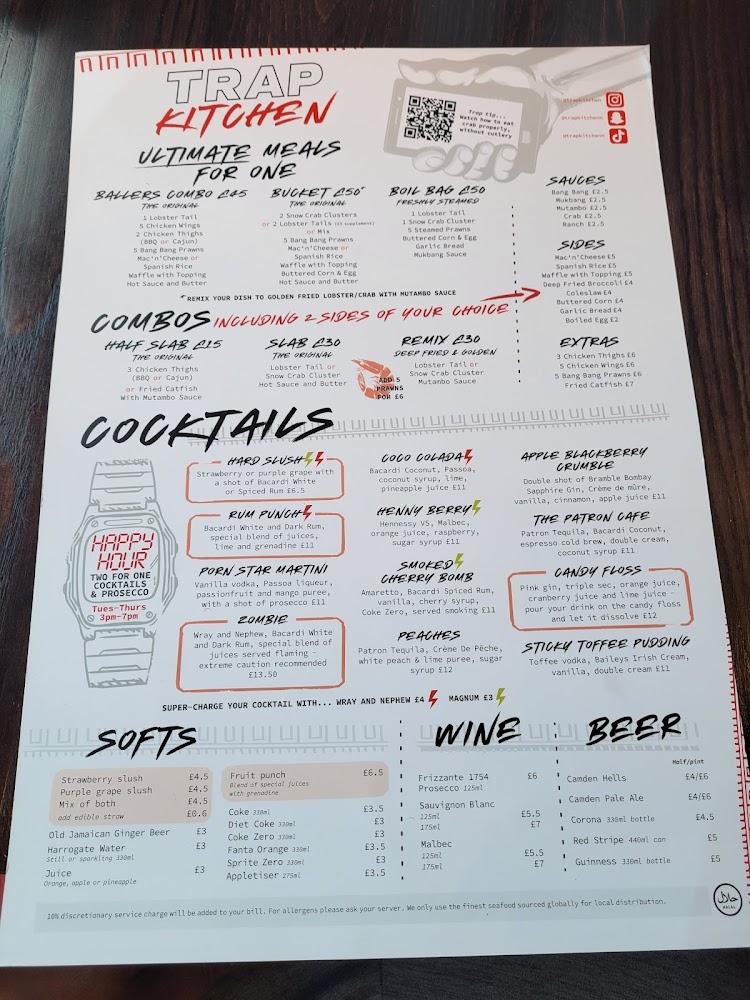 TRAP
KITCHEN
Trap tip...
Watch how to eat
crab properly,
without cutlery
@trapkitchen
@trapkitchenn
@trapkitchenn
ULTIMATE MEALS
FOR ONE
BALLERS COMBO £45
THE ORIGINAL
1 Lobster Tail
5 Chicken Wings
2 Chicken Thighs
(BBQ or Cajun)
5 Bang Bang Prawns
Mac'n'Cheese or
Spanish Rice
Waffle with Topping
Hot Sauce and Butter
BUCKET £50*
THE ORIGINAL
2 Snow Crab Clusters
or 2 Lobster Tails (£5 supplement)
or Mix
5 Bang Bang Prawns
Mac'n'Cheese or
Spanish Rice
Waffle with Topping
Buttered Corn & Egg
Hot Sauce and Butter
BOIL BAG £50
FRESHLY STEAMED
1 Lobster Tail
1 Snow Crab Cluster
5 Steamed Prawns
Buttered Corn & Egg
Garlic Bread
Mukbang Sauce
*REMIX YOUR DISH TO GOLDEN FRIED LOBSTER/CRAB WITH MUTAMBO SAUCE
SAUCES
Bang Bang £2.5
Mukbang £2.5
Mutambo £2.5
Crab £2.5
Ranch £2.5
SIDES
Mac'n'Cheese £5
Spanish Rice £5
Waffle with Topping £5
Deep Fried Broccoli £4
Coleslaw £4
Buttered Corn £4
Garlic Bread £4
Boiled Egg £2
EXTRAS
3 Chicken Thighs £6
5 Chicken Wings £6
5 Bang Bang Prawns £6
Fried Catfish £7
COMBOS INCLUDING 2 SIDES OF YOUR CHOICE
HALF SLAB £15
THE ORIGINAL
3 Chicken Thighs
(BBQ or Cajun)
or Fried Catfish
With Mutambo Sauce
SLAB £30
THE ORIGINAL
Lobster Tail or
Snow Crab Cluster
Hot Sauce and Butter
ADD 5
PRAWNS
FOR £6
REMIX £30
DEEP FRIED & GOLDEN
Lobster Tail or
Snow Crab Cluster
Mutambo Sauce
COCKTAILS
HAPPY
HOUR
TWO FOR ONE
COCKTAILS
& PROSECCO
Tues-Thurs
3pm-7pm
HARD SLUSH
Strawberry or purple grape with
a shot of Bacardi White
or Spiced Rum £6.5
RUM PUNCH
Bacardi White and Dark Rum,
special blend of juices,
lime and grenadine £11
PORN STAR MARTINI
Vanilla vodka, Passoa liqueur,
passionfruit and mango puree,
with a shot of prosecco £11
ZOMBIE
Wray and Nephew, Bacardi White
and Dark Rum, special blend of
juices served flaming -
extreme caution recommended
£13.50
COCO COLADA
Bacardi Coconut, Passoa,
coconut syrup, lime,
pineapple juice £11
HENNY BERRY
Hennessy VS, Malbec,
orange juice, raspberry,
sugar syrup £11
SMOKED
CHERRY BOMB
Amaretto, Bacardi Spiced Rum,
vanilla, cherry syrup,
Coke Zero, served smoking £11
PEACHES
Patron Tequila, Crème De Pêche,
white peach & lime puree, sugar
syrup £12
APPLE BLACKBERRY
CRUMBLE
Double shot of Bramble Bombay
Sapphire Gin, Crème de mûre,
vanilla, cinnamon, apple juice £11
THE PATRON CAFE
Patron Tequila, Bacardi Coconut,
espresso cold brew, double cream,
coconut syrup £11
CANDY FLOSS
Pink gin, triple sec, orange juice,
cranberry juice and lime juice -
pour your drink on the candy floss
and let it dissolve £12
STICKY TOFFEE PUDDING
Toffee vodka, Baileys Irish Cream,
vanilla, double cream £11
SUPER-CHARGE YOUR COCKTAIL WITH... WRAY AND NEPHEW £4 MAGNUM £3
SOFTS
Strawberry slush £4.5
Purple grape slush £4.5
Mix of both £4.5
add edible straw £0.6
Old Jamaican Ginger Beer £3
Harrogate Water £3
Still or sparkling 330ml
Juice £3
Orange, apple or pineapple
Fruit punch £6.5
Blend of special juices
with grenadine
Coke 330ml £3.5
Diet Coke 330ml £3
Coke Zero 330ml £3
Fanta Orange 330ml £3.5
Sprite Zero 330ml £3
Appletiser 275ml £3.5
WINE
Frizzante 1754 £6
Prosecco 125ml
Sauvignon Blanc
125ml £5.5
175ml £7
Malbec
125ml £5.5
175ml £7
BEER
Half/pint
Camden Hells £4/£6
Camden Pale Ale £4/£6
Corona 330ml bottle £4.5
Red Stripe 440ml can £5
Guinness 330ml bottle £5
10% discretionary service charge will be added to your bill. For allergens please ask your server. We only use the finest seafood sourced globally for local distribution.
حلال
HALAL